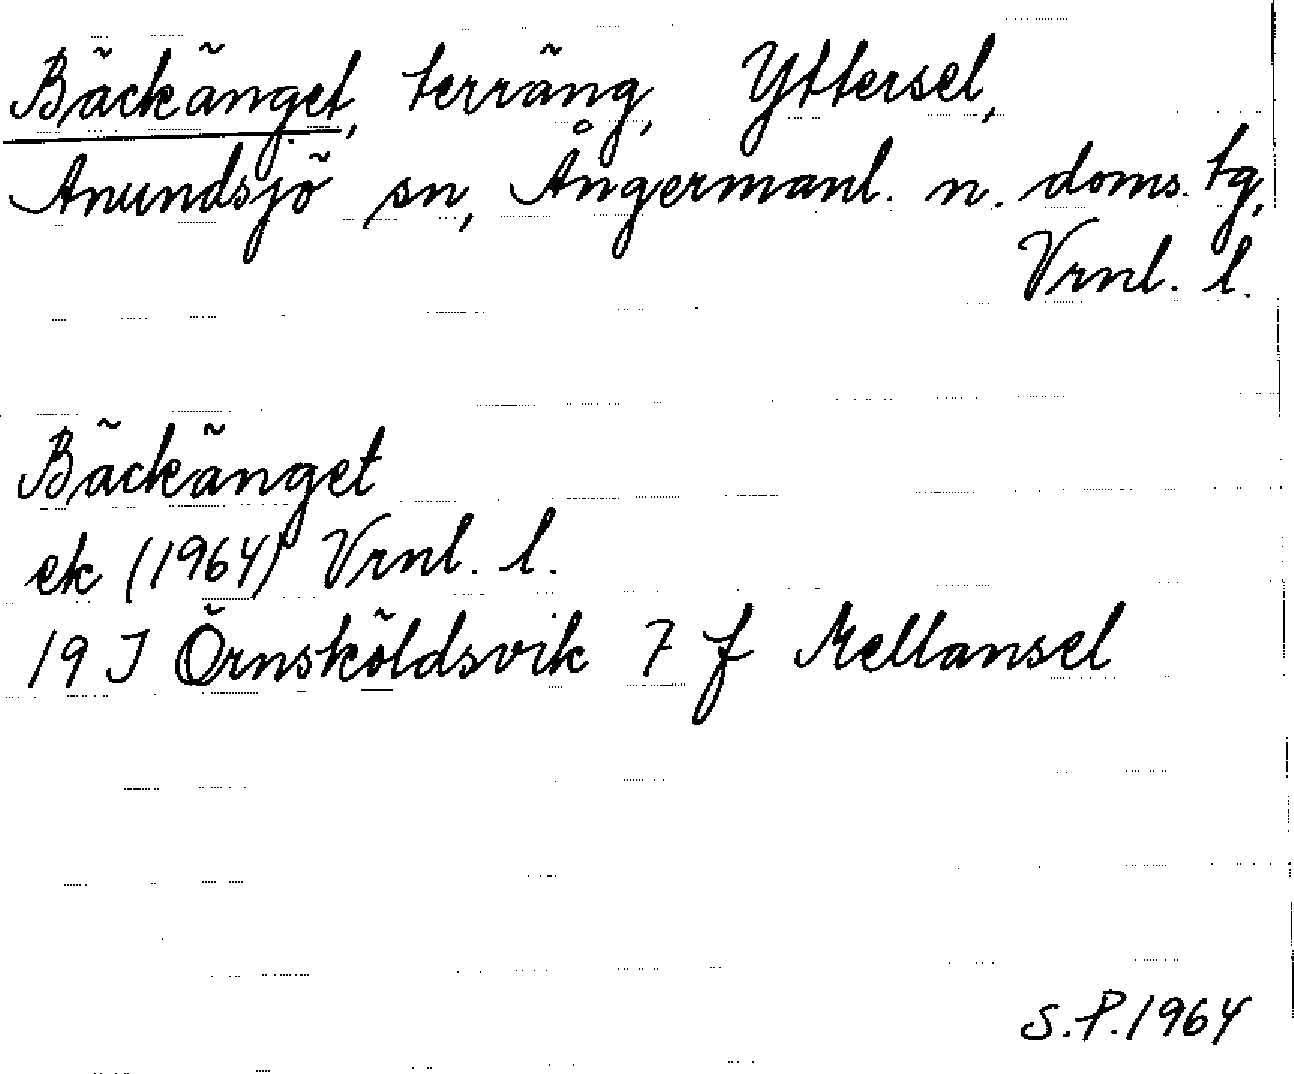 Bäckänget, terräng, Yttersel,
Anundsjö sn, Ångermanl. n. doms. tg,
Vrnl. l.
Bäckänget
ek (1964) Vrnl. l.
19 J Örnsköldsvik 7 f Mellansel
S.P. 1964